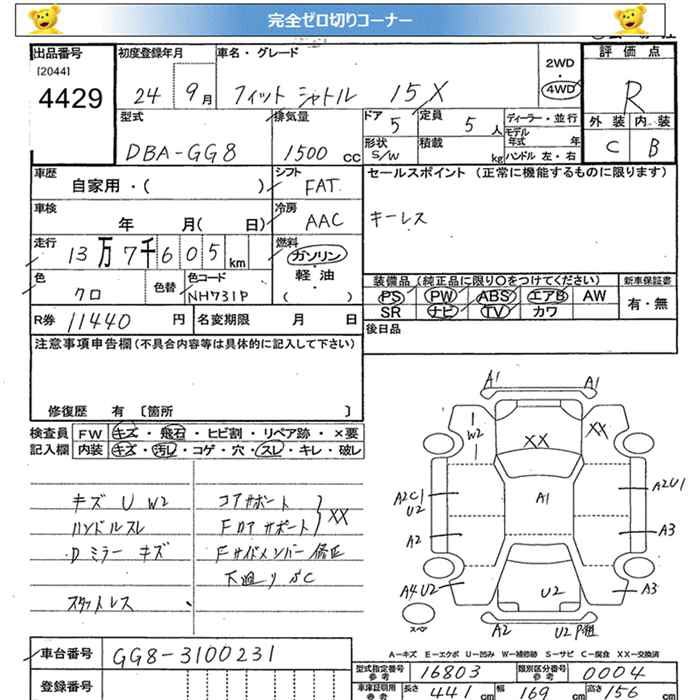 完全ゼロ切りコーナー
出品番号
[2044]
4429
初度登録年月
24 9月
車名・グレード
フィット シャトル 15X
2WD
・
4WD
評価点
R
外装 内装
C B
型式
DBA-GG8
排気量
1500 cc
ドア
5
定員
5 人
形状
S/W
積載
kg
ディーラー・並行
モデル年式 年
ハンドル 左・右
車歴
自家用・( )
シフト
FAT
セールスポイント (正常に機能するものに限ります)
キーレス
車検
年 月( 日)
冷房
AAC
走行
13万7千605km
燃料
ガソリン
・
軽油
( )
色
クロ
色替
色コード
NH731P
装備品 (純正品に限り○をつけてください)
PS PW ABS エアB AW
SR ナビ TV カワ
新車保証書
有・無
R券 11440 円
名変期限 月 日
後日品
注意事項申告欄 (不具合内容等は具体的に記入して下さい)
修復歴 有 [箇所 ]
検査員
記入欄
FW キズ・飛石・ヒビ割・リペア跡・×要
内装 キズ・汚レ・コゲ・穴・スレ・キレ・破レ
キズ U W2
ハンドルスレ
D ミラー キズ
スタットレス
コアサポート
Fロアサポート
XX
Fサイドメンバー 修正
下廻り S C
A1 A1
W2 XX XX
A2C1
U2
A1
A2U1
A2 A3
A4U2 U2 A3
スペア
A2 U2 P粗
A－キズ E－エクボ U－凹み W－補修跡 S－サビ C－腐食 XX－交換済
車台番号
GG8-3100231
登録番号
型式指定番号
参考
16803
類別区分番号
参考
0004
車庫証明用
参考
長さ 441 cm
幅 169 cm
高さ 154 cm